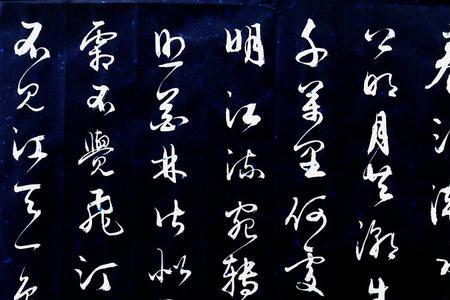 春江潮水
上明月共潮生
千萬里何處
明江流宛轉
照花林皆似
霜不覺飛汀
不見江天一色